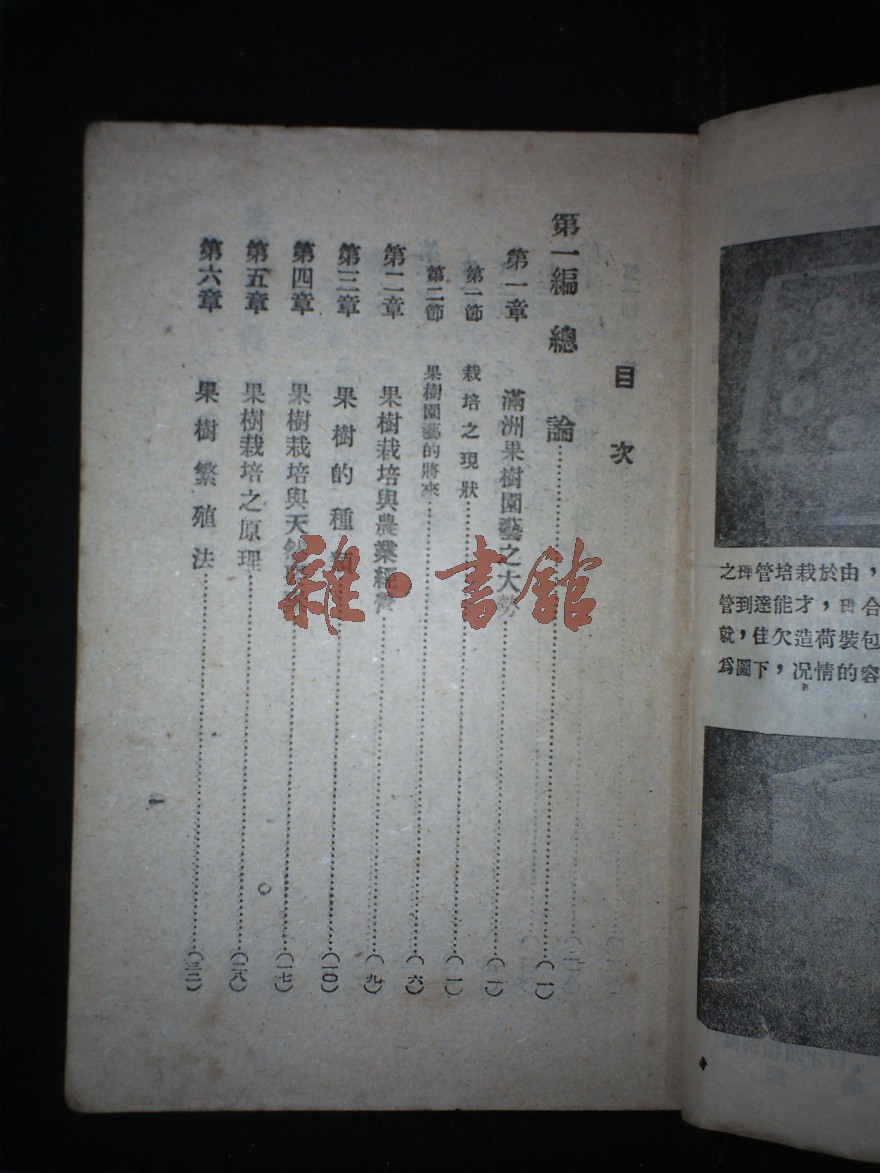 目次
第一編 總論……(一)
第一章 滿洲果樹園藝之大勢……(一)
第一節 栽培之現狀……(一)
第二節 果樹園藝的將來……(六)
第二章 果樹栽培與農業經營……(九)
第三章 果樹的種類……(一〇)
第四章 果樹栽培與天然……(一七)
第五章 果樹栽培之原理……(二八)
第六章 果樹繁殖法……(三二)
一
，由於栽培管理之
合理，才能達到管
包裝荷造欠佳，就
容的情况，下圖爲
雜·書館